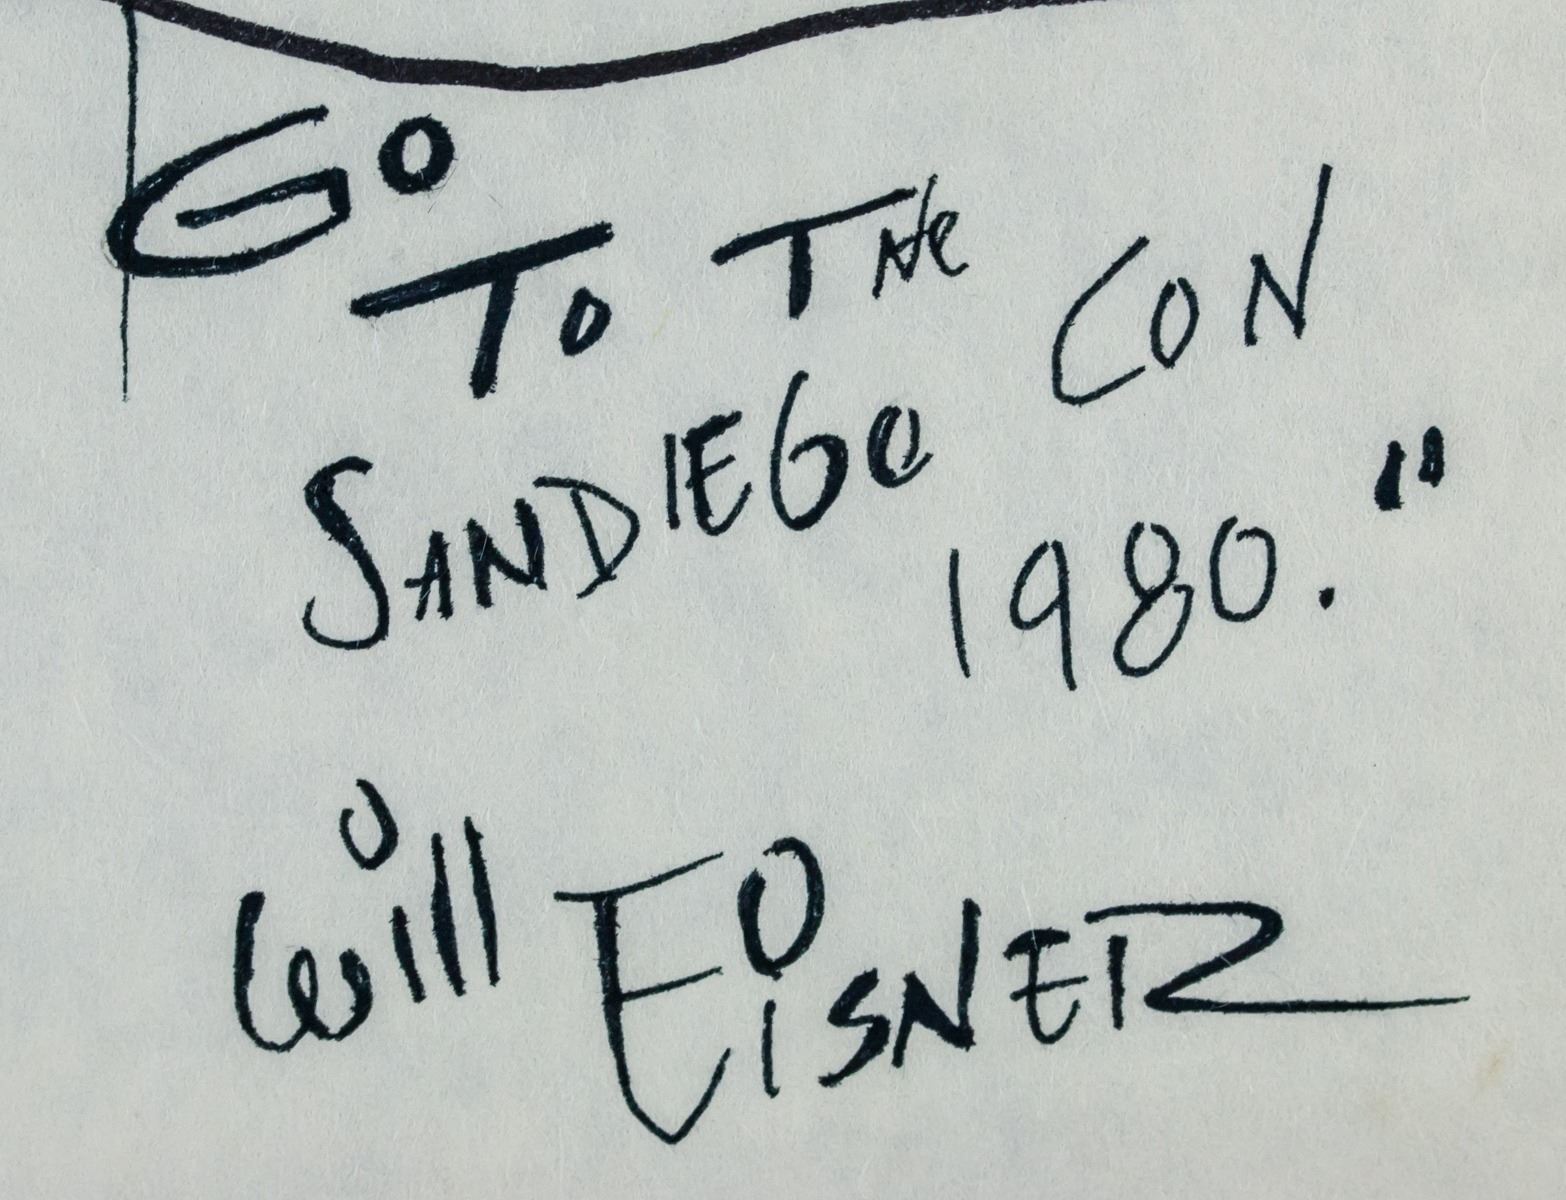 GO
TO THE CON
SANDIEGO
1980."
Will EISNER